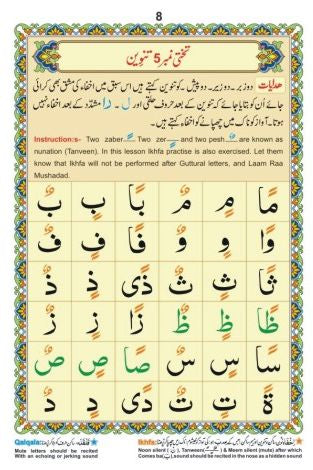 8
تختی نمبر 5 تنوین
ھدایات دو زبر۔ دو زیر۔ دو پیش کو تنوین کہتے ہیں اس سبق میں اخفاء کی مشق بھی کرائی
جائے اُن کو بتایا جائے کہ تنوین کے بعد حروف حلقی اور ل۔ رامشدّد کے بعد اخفاء نہیں
ہوتا۔ آواز کو ناک میں چھپانے کو اخفاء کہتے ہیں۔
Instruction:s- Two zaber ً Two zer ٍ and two pesh ٌ are known as
nunation (Tanveen). In this lesson Ikhfa practise is also exercised. Let them
know that Ikhfa will not be performed after Guttural letters, and Laam Raa
Mushadad.
مًا مٍ مٌ بًا بٍ بٌ
وًا وٍ وٌ فًا فٍ فٌ
ثًا ثٍ ثٌ ذًى ذٍ ذٌ
ظًا ظٍ ظٌ زًا زٍ زٌ
سًا سٍ سٌ صًا صٍ صٌ
ةً تٍ ةٌ دًى دٍ دٌ
Qalqala:
Mute letters should be recited
With an echoing or jerking sound
Ikhfa:
Noon silent (نْ), Tanween & Meem silent (mute) after which
Comes ba(ب), sound should be recited in the nose as a hidden sound